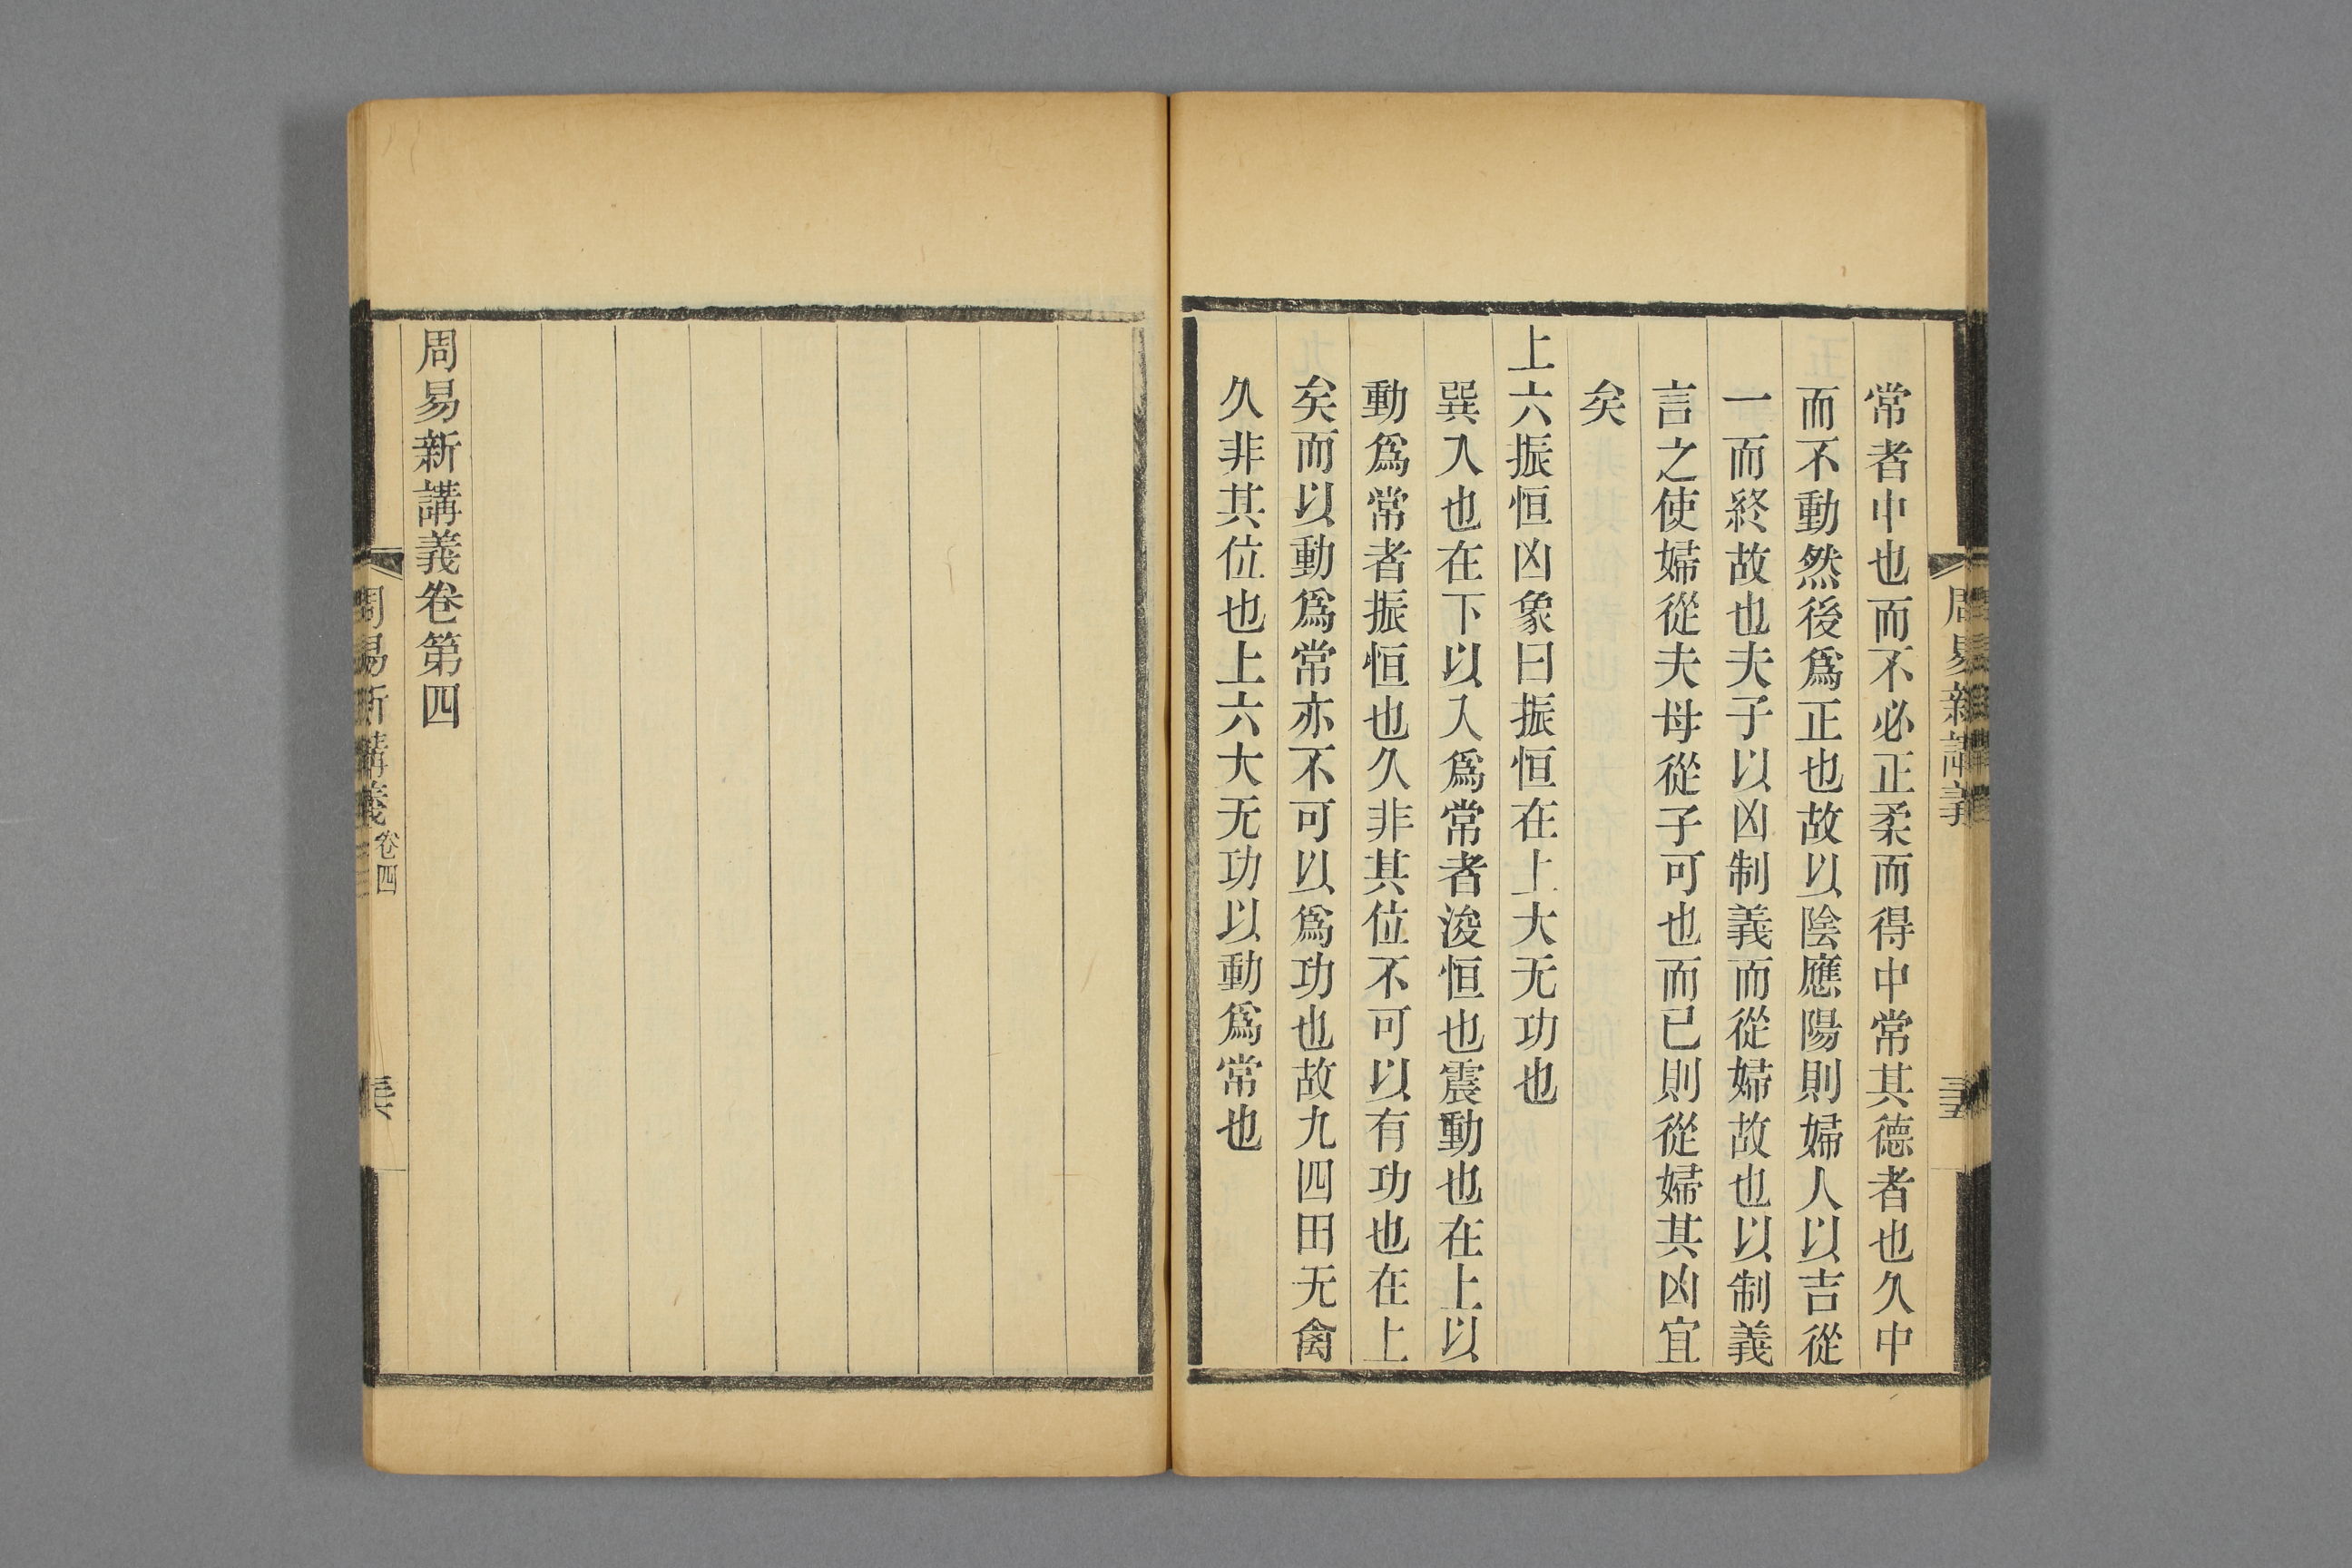 周易新講義
三五
常者中也而不必正柔而得中常其德者也久中
而不動然後爲正也故以陰應陽則婦人以吉從
一而終故也夫子以凶制義而從婦故也以制義
言之使婦從夫母從子可也而已則從婦其凶宜
矣
上六振恒凶象曰振恒在上大无功也
巽入也在下以入爲常者浚恒也震動也在上以
動爲常者振恒也久非其位不可以有功也在上
矣而以動爲常亦不可以爲功也故九四田无禽
久非其位也上六大无功以動爲常也
周易新講義卷第四
周易新講義
卷四